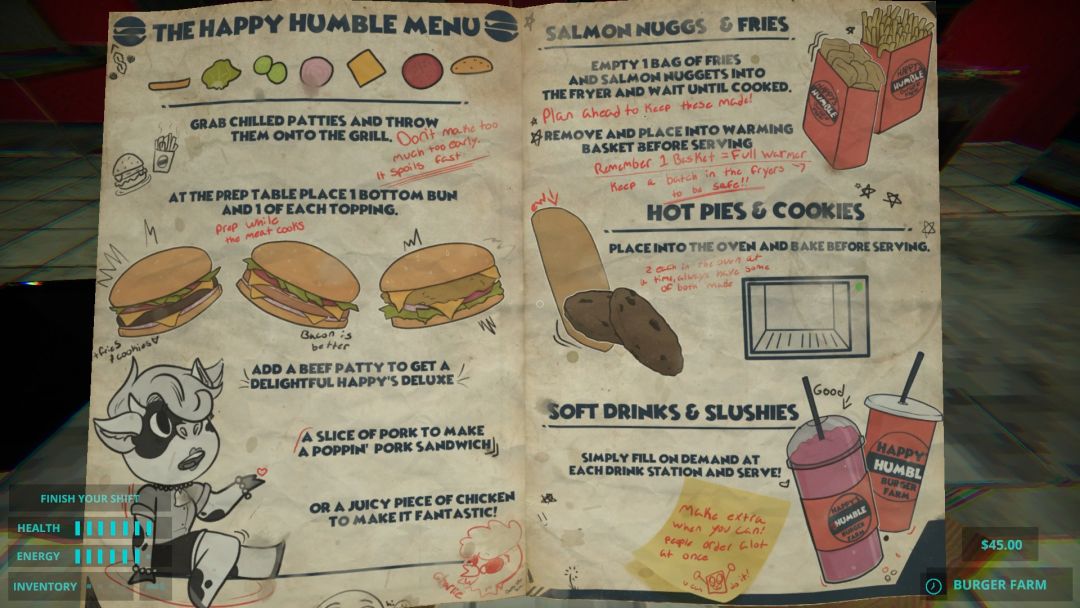 THE HAPPY HUMBLE MENU
GRAB CHILLED PATTIES AND THROW
THEM ONTO THE GRILL.
Don't make too
much too early.
It spoils fast.
AT THE PREP TABLE PLACE 1 BOTTOM BUN
AND 1 OF EACH TOPPING.
Prep while
the meat cooks
+fries
+cookies
Bacon is
better
ADD A BEEF PATTY TO GET A
DELIGHTFUL HAPPY'S DELUXE
A SLICE OF PORK TO MAKE
A POPPIN' PORK SANDWICH
OR A JUICY PIECE OF CHICKEN
TO MAKE IT FANTASTIC!
hi
SALMON NUGGS & FRIES
EMPTY 1 BAG OF FRIES
AND SALMON NUGGETS INTO
THE FRYER AND WAIT UNTIL COOKED.
Plan ahead to keep these made!
REMOVE AND PLACE INTO WARMING
BASKET BEFORE SERVING
Remember 1 Basket = Full Warmer
Keep a batch in the fryers
to be safe!!
HAPPY
HUMBLE
HAPPY
HUMBLE
HOT PIES & COOKIES
PLACE INTO THE OVEN AND BAKE BEFORE SERVING.
2 each in the oven at
a time, always have some
of both made
SOFT DRINKS & SLUSHIES
Good
SIMPLY FILL ON DEMAND AT
EACH DRINK STATION AND SERVE!
Make extra
when you can!
People order alot
at once
u can do it!
HAPPY
HUMBLE
BURGER
FARM
HAPPY
HUMBL
BURGER
FARM
FINISH YOUR SHIFT
HEALTH
ENERGY
INVENTORY
$45.00
BURGER FARM